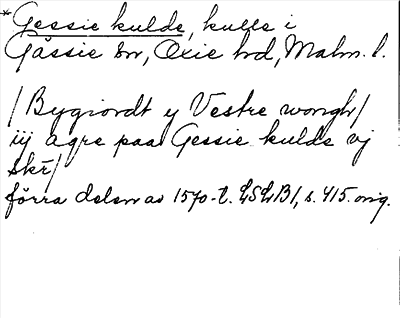 *Gessie kulde, kulle i
Gässie sn, Oxie hd, Malm. l.
/Bygiordt y Vestre wongh/
iij agre paa Gessie kulde vj
skr/
förra delen av 1570-t. LSLB1, s. 415. orig.